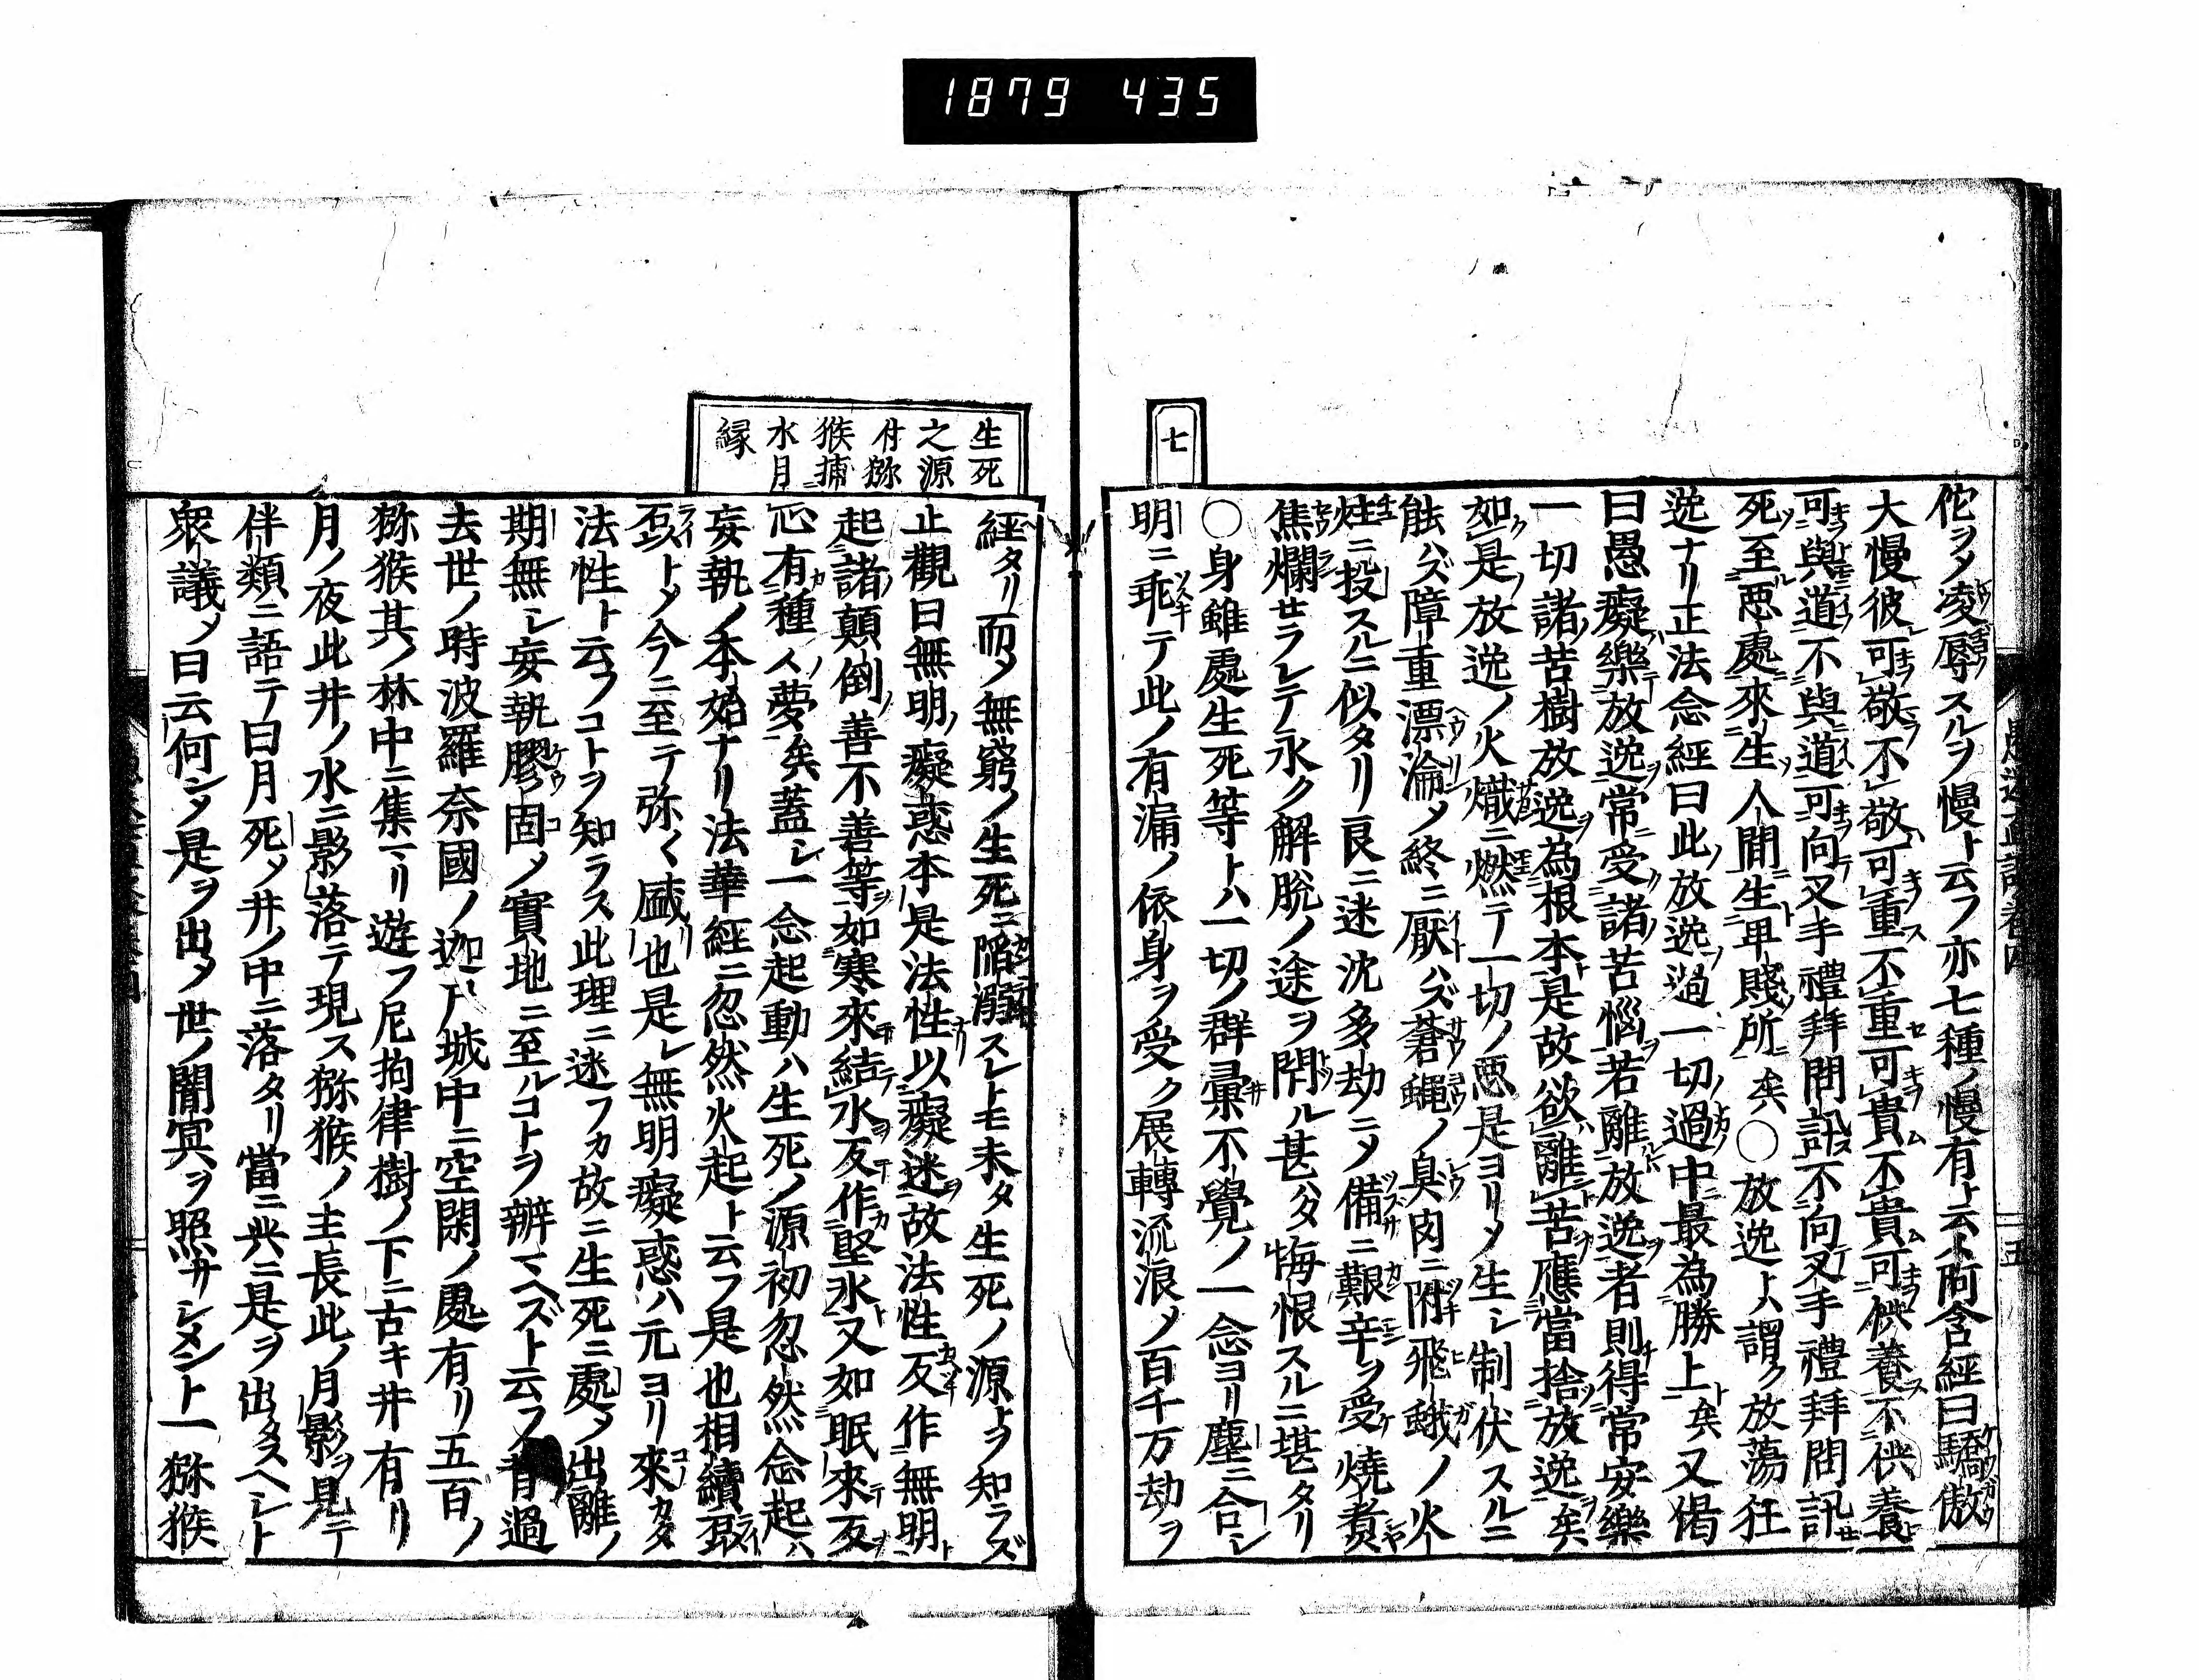 1879 435
佗ヲシテ凌辱スルヲ慢ト云フ亦七種ノ慢有ト云ト阿含經曰驕傲
大慢彼可敬不敬可重不重可貴不貴可供養不供養
可與道不與道可向叉手禮拜問訊不向叉手禮拜問訊
死至惡處來生人間生卑賤所矣○放逸トハ謂ク放蕩狂
逸ナリ正法念經曰此放逸過一切過中最為勝上矣又偈
曰愚癡樂放逸常受諸苦惱若離放逸者則得常安樂
一切諸苦樹放逸為根本是故欲離苦應當捨放逸矣
如是放逸ノ火熾ニ燃テ一切ノ惡是ヨリシテ生シ制伏スルニ
能ハズ障重漂淪シテ終ニ厭ハズ蒼蠅ノ臭肉ニ附飛蛾ノ火
炷ニ投スルニ似タリ良ニ迷沈多劫ニシテ備ニ艱辛ヲ受燒煑
焦爛セラレテ永ク解脫ノ途ヲ閇ル甚ハタ悔恨スルニ堪タリ
七
○身雖處生死等トハ一切ノ群彙不覺ノ一念ヨリ塵ニ合シ
明ニ乖テ此ノ有漏ノ依身ヲ受ク展轉流浪シテ百千万劫ヲ
生死
之源
付猕
猴捕
水月
縁
經タリ而シテ無窮ノ生死ニ陷溺スレトモ未タ生死ノ源トヲ知ラズ
止觀曰無明癡惑本是法性以癡迷故法性反作無明
起諸顛倒善不善等如寒來結水反作堅氷又如眠來反
心有種々夢矣蓋シ一念起動ハ生死ノ源初忽然念起ハ
妄執ノ本始ナリ法華經ニ忽然火起ト云フ是也相續
トシテ今ニ至テ弥々盛也是レ無明癡惑ハ元ヨリ來カタ
法性ト云フコトヲ知ラス此理ニ迷フカ故ニ生死ニ處シテ出離ノ
期無レ妄執膠固シテ實地ニ至ルコトヲ辦マヘズト云フ昔過
去世ノ時波羅奈國ノ迦尸城中ニ空閑ノ處有リ五百ノ
猕猴其ノ林中ニ集マリ遊フ尼拘律樹ノ下ニ古キ井有リ
月ノ夜此井ノ水ニ影落テ現ス猕猴ノ主長此ノ月影ヲ見テ
伴類ニ語テ曰月死シテ井ノ中ニ落タリ當ニ共ニ是ヲ出タスヘシト
衆議シテ曰云何シテ是ヲ出シテ世ノ闇冥ヲ照サシメント一猕猴